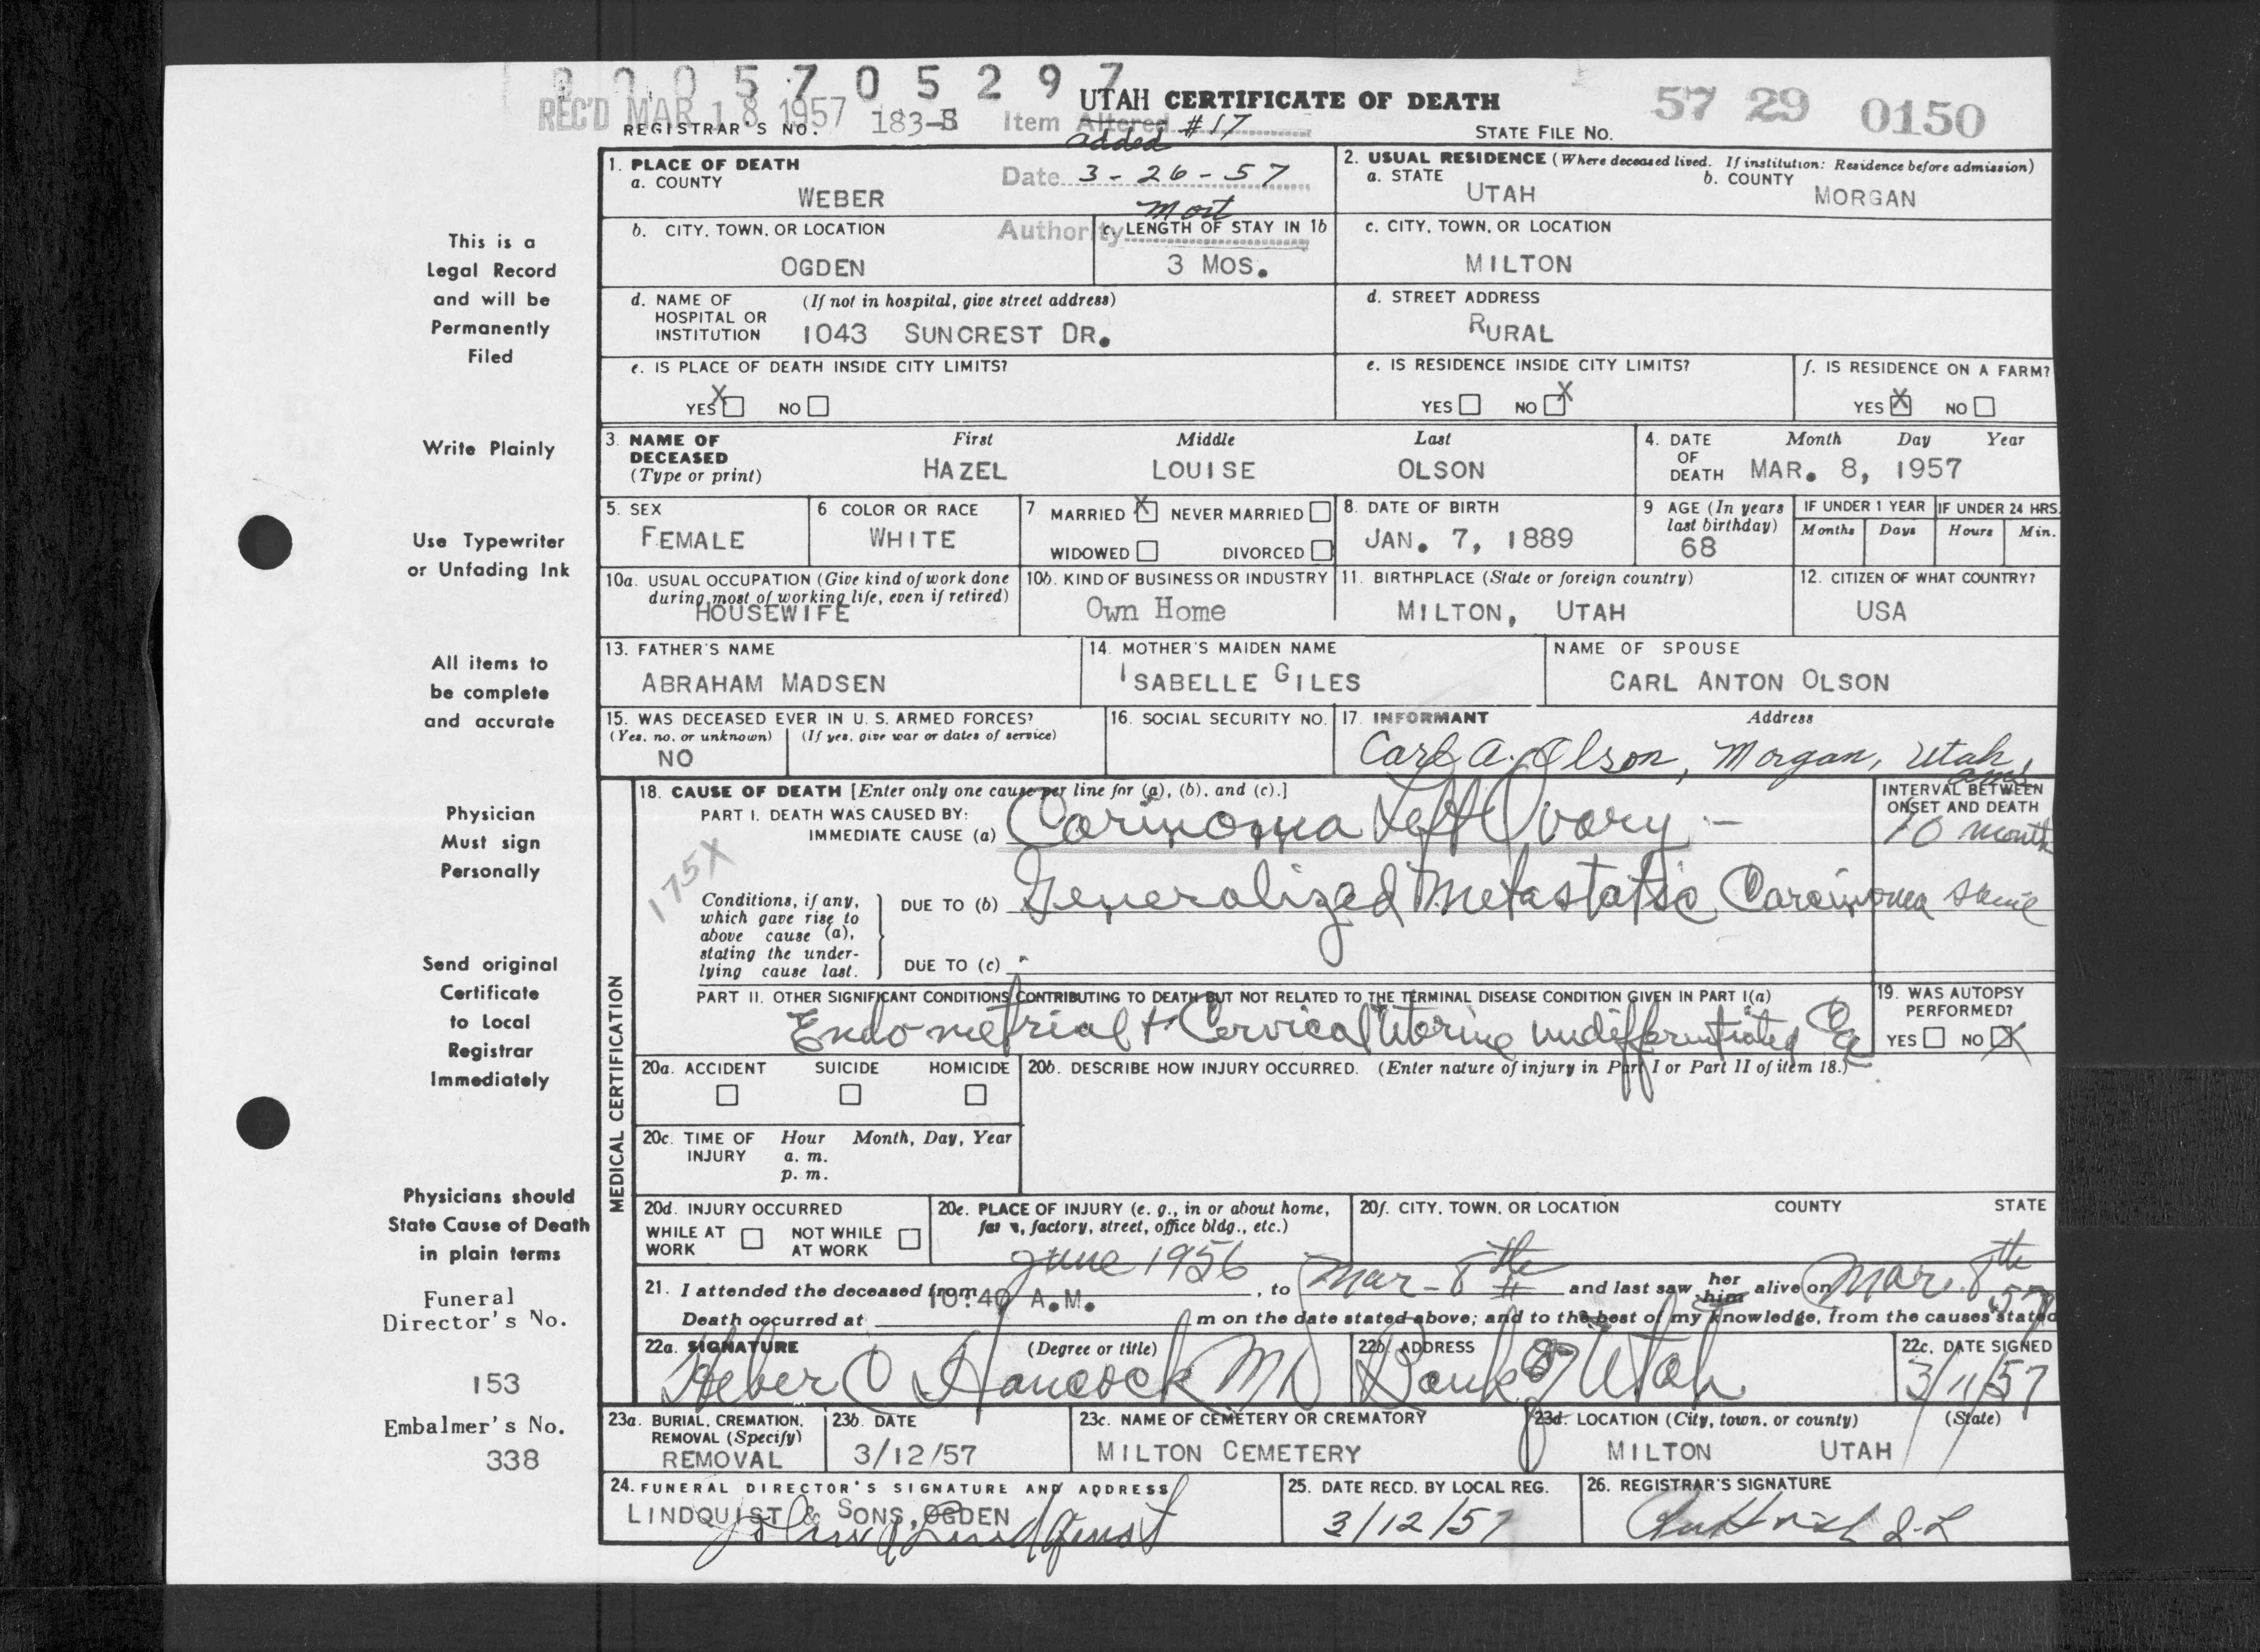 0 0 0 5 7 0 5 2 9 7
REC'D MAR 18 1957
UTAH CERTIFICATE OF DEATH
57 29 0150
REGISTRAR'S NO. 183-B
Item Altered #17
added
STATE FILE NO.
Date 3-26-57
Authority mort
1. PLACE OF DEATH
a. COUNTY
WEBER
2. USUAL RESIDENCE (Where deceased lived. If institution: Residence before admission)
a. STATE
UTAH
b. COUNTY
MORGAN
b. CITY, TOWN, OR LOCATION
OGDEN
c. LENGTH OF STAY IN 1b
3 MOS.
c. CITY, TOWN, OR LOCATION
MILTON
d. NAME OF HOSPITAL OR INSTITUTION
(If not in hospital, give street address)
1043 SUNCREST DR.
d. STREET ADDRESS
RURAL
e. IS PLACE OF DEATH INSIDE CITY LIMITS?
YES X NO
e. IS RESIDENCE INSIDE CITY LIMITS?
YES NO X
f. IS RESIDENCE ON A FARM?
YES X NO
3. NAME OF DECEASED
(Type or print)
First Middle Last
HAZEL LOUISE OLSON
4. DATE OF DEATH
Month Day Year
MAR. 8, 1957
5. SEX
FEMALE
6. COLOR OR RACE
WHITE
7. MARRIED X NEVER MARRIED
WIDOWED DIVORCED
8. DATE OF BIRTH
JAN. 7, 1889
9 AGE (In years last birthday)
68
IF UNDER 1 YEAR
Months Days
IF UNDER 24 HRS.
Hours Min.
10a. USUAL OCCUPATION (Give kind of work done
during most of working life, even if retired)
HOUSEWIFE
10b. KIND OF BUSINESS OR INDUSTRY
Own Home
11. BIRTHPLACE (State or foreign country)
MILTON, UTAH
12. CITIZEN OF WHAT COUNTRY?
USA
13. FATHER'S NAME
ABRAHAM MADSEN
14. MOTHER'S MAIDEN NAME
ISABELLE GILES
NAME OF SPOUSE
CARL ANTON OLSON
15. WAS DECEASED EVER IN U. S. ARMED FORCES?
(Yes, no, or unknown) (If yes, give war or dates of service)
NO
16. SOCIAL SECURITY NO.
17. INFORMANT Address
Carl A. Olson, Morgan, Utah
MEDICAL CERTIFICATION
18. CAUSE OF DEATH [Enter only one cause per line for (a), (b), and (c).]
PART I. DEATH WAS CAUSED BY:
IMMEDIATE CAUSE (a) Carinoma Left Ovary -
INTERVAL BETWEEN
ONSET AND DEATH
10 month
175X
Conditions, if any,
which gave rise to
above cause (a),
stating the under-
lying cause last.
DUE TO (b) Generalized Metastatic Carcinoma same
DUE TO (c)
PART II. OTHER SIGNIFICANT CONDITIONS CONTRIBUTING TO DEATH BUT NOT RELATED TO THE TERMINAL DISEASE CONDITION GIVEN IN PART I(a)
Endometrial + Cervical Uterine undifferentiated Ca
19. WAS AUTOPSY PERFORMED?
YES NO X
20a. ACCIDENT SUICIDE HOMICIDE
20b. DESCRIBE HOW INJURY OCCURRED. (Enter nature of injury in Part I or Part II of item 18.)
20c. TIME OF INJURY
Hour Month, Day, Year
a. m.
p. m.
20d. INJURY OCCURRED
WHILE AT WORK NOT WHILE AT WORK
20e. PLACE OF INJURY (e. g., in or about home,
farm, factory, street, office bldg., etc.)
20f. CITY, TOWN, OR LOCATION COUNTY STATE
21. I attended the deceased from June 1956, to Mar - 8th and last saw her him alive on Mar. 8th 57
Death occurred at 10:40 A.M. m on the date stated above; and to the best of my knowledge, from the causes stated
22a. SIGNATURE (Degree or title)
Heber C Hancock MD
22b. ADDRESS
Bank of Utah
22c. DATE SIGNED
3/11/57
23a. BURIAL, CREMATION, REMOVAL (Specify)
REMOVAL
23b. DATE
3/12/57
23c. NAME OF CEMETERY OR CREMATORY
MILTON CEMETERY
23d. LOCATION (City, town, or county) (State)
MILTON UTAH
24. FUNERAL DIRECTOR'S SIGNATURE AND ADDRESS
LINDQUIST & SONS, OGDEN
25. DATE RECD. BY LOCAL REG.
3/12/57
26. REGISTRAR'S SIGNATURE
This is a
Legal Record
and will be
Permanently
Filed
Write Plainly
Use Typewriter
or Unfading Ink
All items to
be complete
and accurate
Physician
Must sign
Personally
Send original
Certificate
to Local
Registrar
Immediately
Physicians should
State Cause of Death
in plain terms
Funeral
Director's No.
153
Embalmer's No.
338